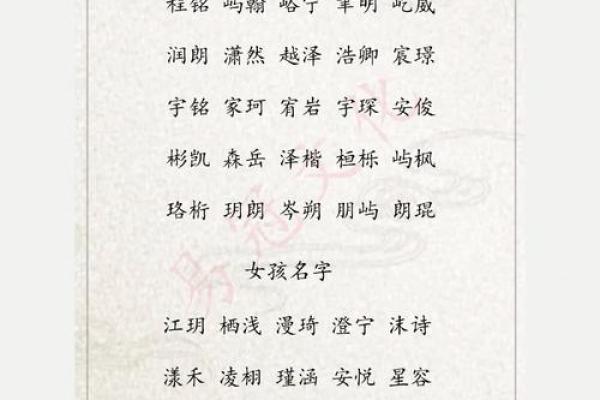 程铭 屿翰 峪宁 聿明 屹威
润朗 潇然 越泽 浩卿 宸璟
宇铭 家珂 宥岩 宇琛 安俊
彬凯 森岳 泽楷 桓栎 屿枫
珞桁 玥朗 岑朔 朋屿 朗琨
女孩名字
江玥 栖浅 漫琦 澄宁 沫诗
漾禾 凌栩 瑾涵 安悦 星容
易冠文化